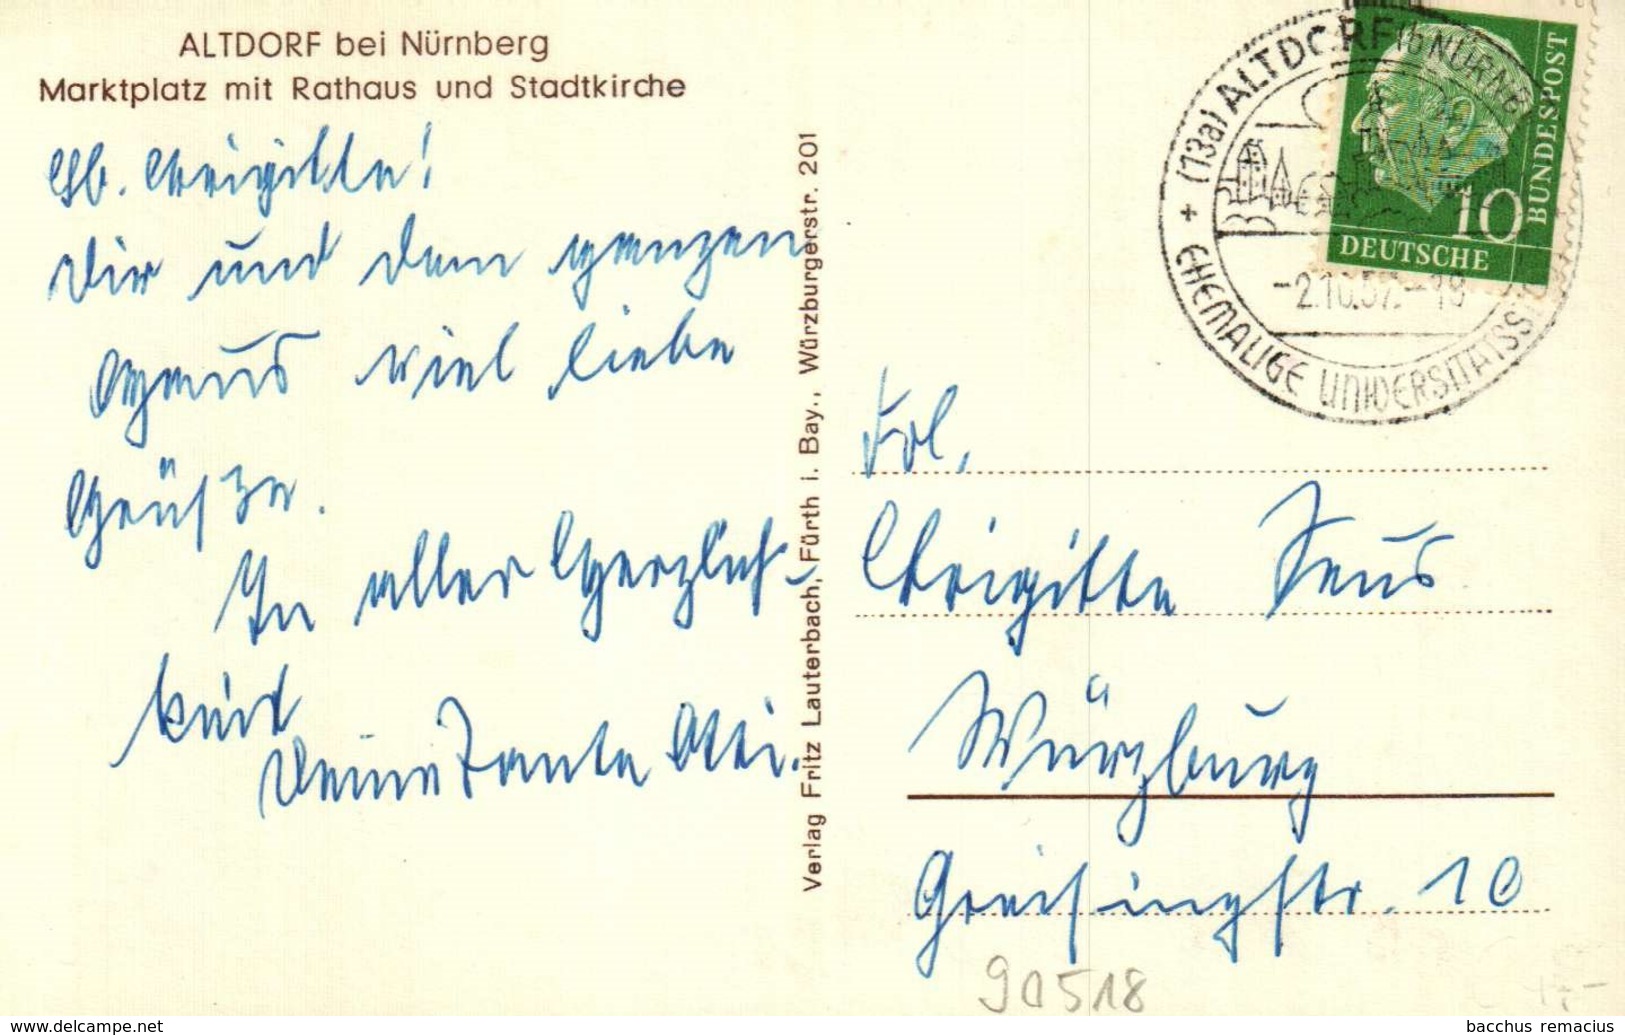 ALTDORF bei Nürnberg
Marktplatz mit Rathaus und Stadtkirche
Lb. Brigitte!
Dir und dem ganzen
Haus viel liebe
Grüße.
In aller Herzlich-
keit
Deine Tante Otti.
Verlag Fritz Lauterbach, Fürth i. Bay., Würzburgerstr. 201
+ (13a) ALTDORF (b NÜRNB
EHEMALIGE UNIVERSITÄTSS
-2.10.57.-18
10
DEUTSCHE
BUNDESPOST
Frl.
Brigitte Seus
Würzburg
Greisingstr. 10
90518
bacchus remacius
www.delcampe.net